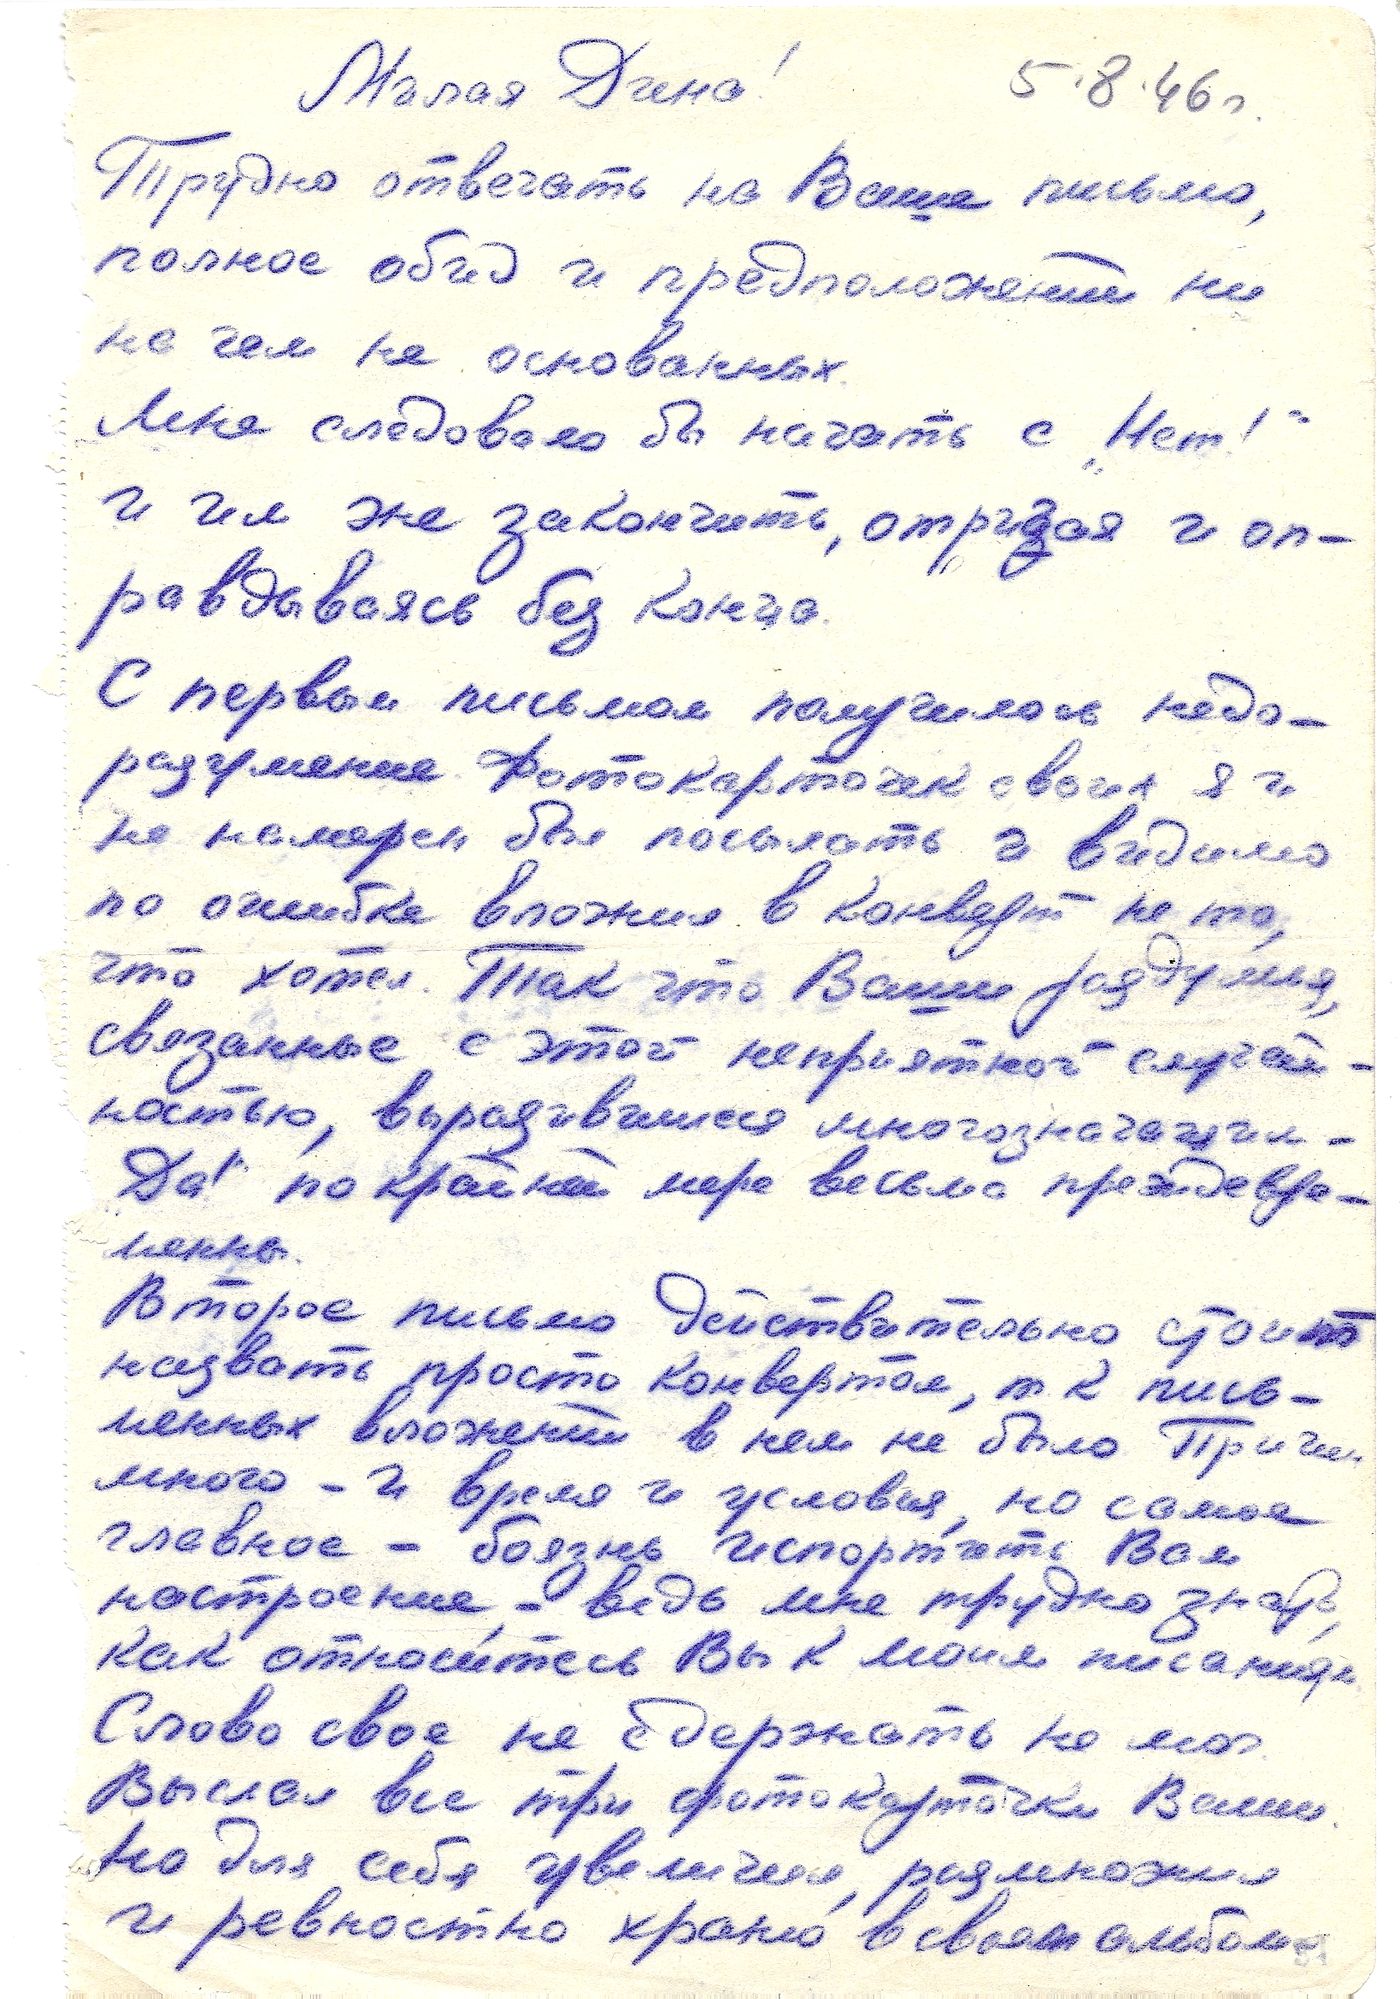 Милая Дина! 5.8.46г.
Трудно отвечать на Ваше письмо,
полное обид и предположений ни
на чем не основанных.
Мне следовало бы начать с „Нет!“
и им же закончить, отрицая и оп-
равдываясь без конца.
С первым письмом получилось недо-
разумение. Фотокарточек своих я и
не намерен был посылать и видимо
по ошибке вложил в конверт не то,
что хотел. Так что Ваши раздумья,
связанные с этой неприятной случай-
ностью, выразившиеся многозначащим -
Да! по крайней мере весьма преждевре-
менны.
Второе письмо действительно стоит
назвать просто конвертом, т к пись-
менных вложений в нем не было Причин
много - и время и условия, но самое
главное - боязнь испортить Вам
настроение, - ведь мне трудно знать,
как относитесь Вы к моим писаниям.
Слово свое не сдержать не мог.
Выслал все три фотокарточки Ваши.
но для себя увеличил, размножил
и ревностно храню в своем альбоме